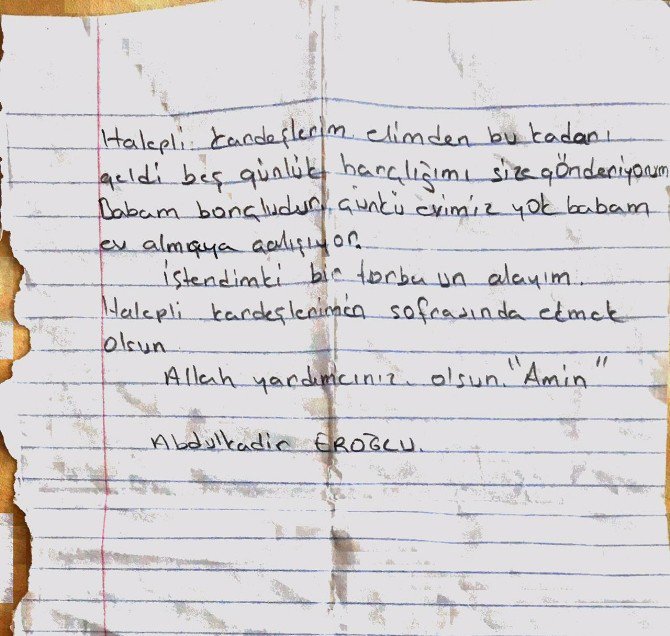 Halepli kardeşlerim elimden bu kadarı
geldi beş günlük harçlığımı size gönderiyorum
Babam borçludur çünkü evimiz yok babam
ev almaya çalışıyor.
İsterdimki bir torba un alayım.
Halepli kardeşlerimin sofrasında ekmek
olsun
Allah yardımcınız. olsun. "Amin"
Abdulkadir EROĞLU.